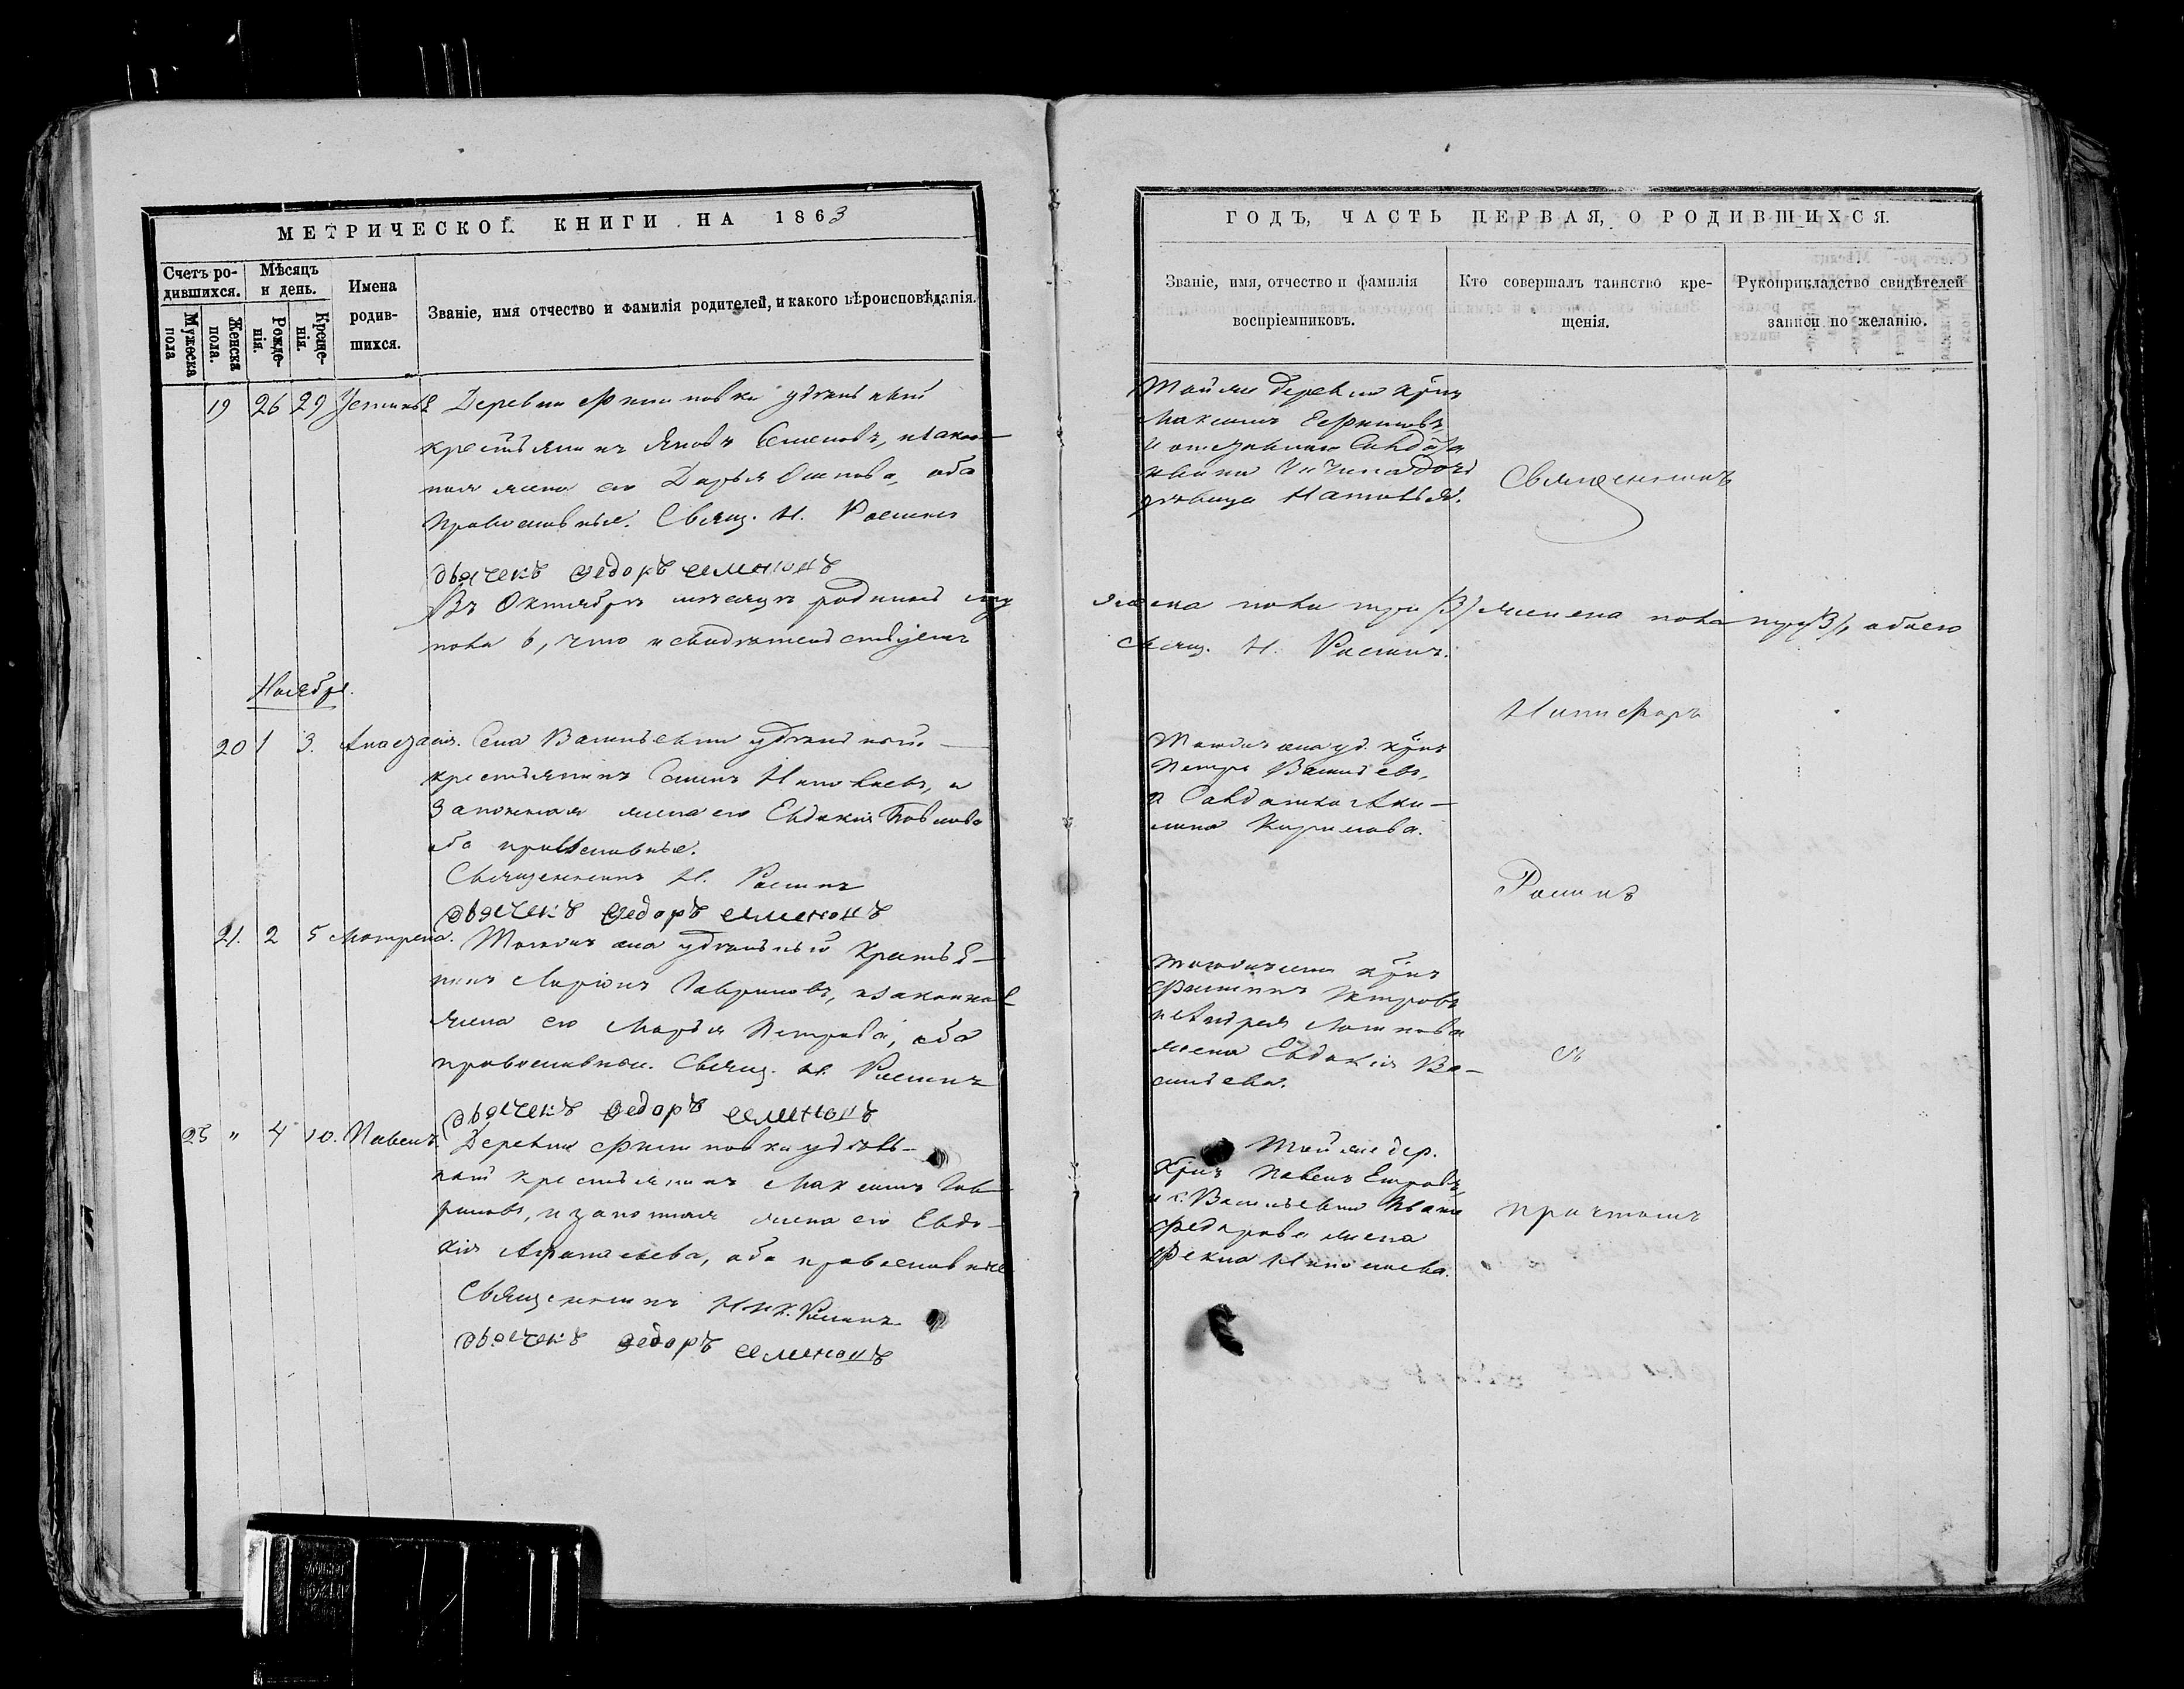 МЕТРИЧЕСКОЙ КНИГИ НА 1863
Счетъ родившихся.
Мужеска пола
Женска пола.
Мѣсяцъ и день.
Рожденія.
Крещенія.
Имена родившихся.
Званіе, имя отчество и фамилія родителей, и какого вѣроисповѣданія.
19 26 29 Устинья Деревни Филиповки удѣльный
крестьянинъ Яковъ Семеновъ, и закон-
ная жена его Дарья Осипова, оба
православные. Свящ. Н. Росинъ
дьячекъ Федоръ
Въ Октябрѣ мѣсяцѣ родилось му
пола 6, что и свидѣтельствуетъ
Ноябрь.
20 1 3. Анастасія. Села Васильевки удѣльный
крестьянинъ Николаевъ, и
законная жена его Евдокія Павлова
оба православные.
Священникъ Н. Росинъ
дьячекъ Федоръ
21. 2 5 Матрена. Тогожъ села удѣльный крестья-
нинъ Ларіонъ Гавриловъ, и законная
жена его Марья Петрова, оба
православные. Свящ. Н. Росинъ
дьячекъ Федоръ
23 " 4 10. Павелъ. Деревни Филиповки удѣль-
ный крестьянинъ Максимъ Гав-
риловъ, и законная жена его Евдо-
кія Афанасьева, оба православные
Священникъ Ник. Росинъ
дьячекъ Федоръ
ГОДЪ, ЧАСТЬ ПЕРВАЯ, О РОДИВШИХСЯ.
Званіе, имя, отчество и фамилія
воспріемниковъ.
Кто совершалъ таинство кре-
щенія.
Рукоприкладство свидѣтелей
записи по желанію.
Той же деревни крнъ
Максимъ Ефимовъ,
дочь
дѣвица Наталья.
Священникъ
жеска пола три /3/ женска пола три /3/, обоего
Свящ. Н. Росинъ.
Никифоръ
Тогожъ села уд. крнъ
Петръ Васильевъ,
и Солдатка Аку-
лина Кирилова.
Росинъ
Тогожъ села крнъ
Филипъ Петровъ
и Андрея
жена Евдокія Ва-
сильева.
съ
Той же дер.
крнъ Павелъ
и с. Васильевки Ивана
Федорова жена
Фекла Николаева.
причтомъ